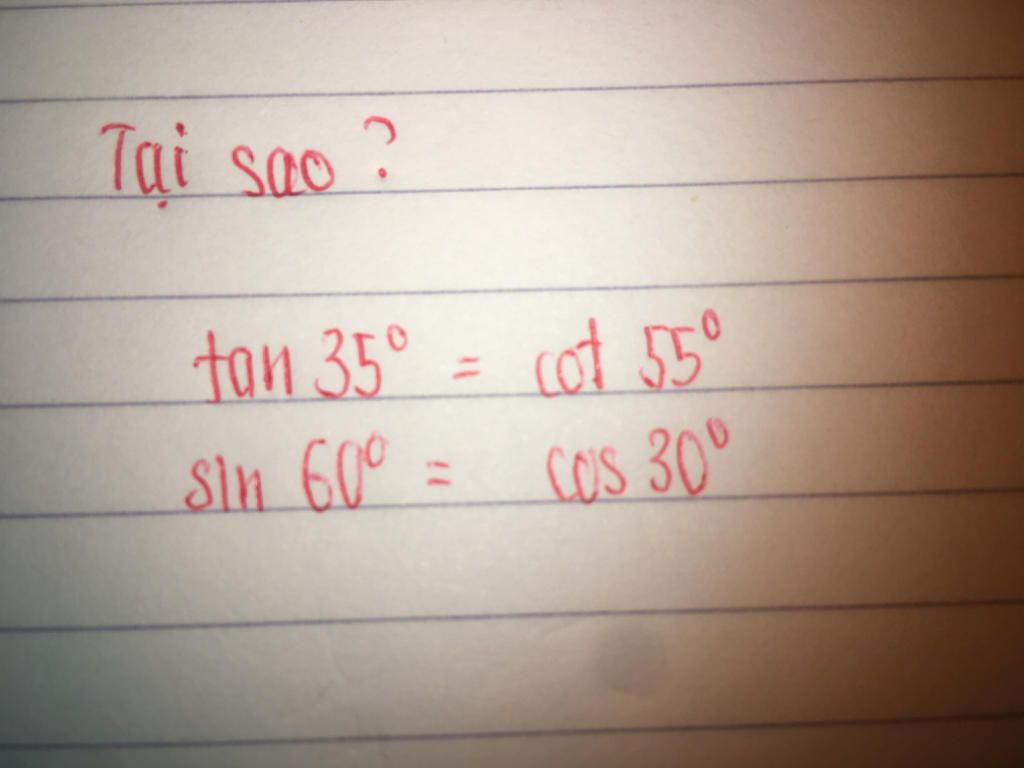 Tại sao?
tan 35° = cot 55°
sin 60° = cos 30°